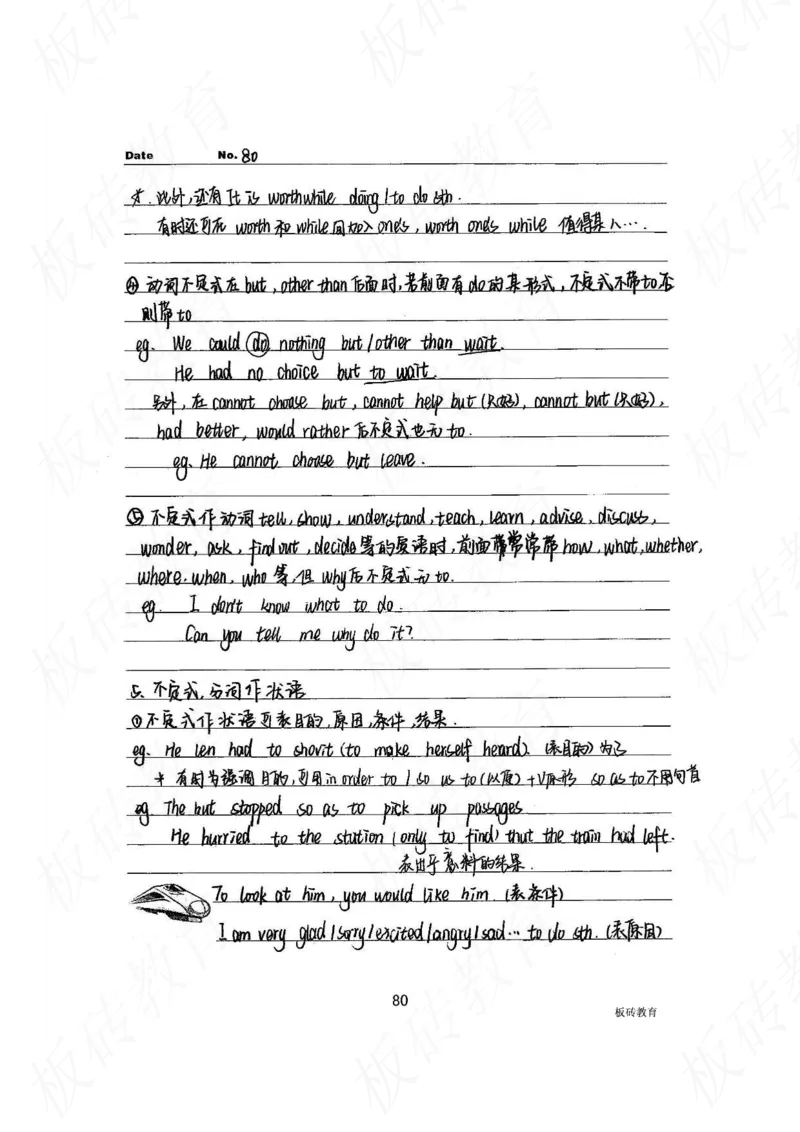 Date No. 80
*. 此外,还有 It is worthwhile doing / to do sth.
有时还可在 worth 和 while 间加入 one's, worth one's while 值得某人….
④ 动词不定式在 but, other than 后面时,若前面有 do 的某形式, 不定式不带 to 否
则带 to
eg. We could do nothing but / other than wait.
He had no choice but to wait.
另外, 在 cannot choose but, cannot help but (只好), cannot but (只好),
had better, would rather 后不定式也无 to.
eg. He cannot choose but leave.
⑤ 不定式作动词 tell, show, understand, teach, learn, advise, discuss,
wonder, ask, find out, decide 等的宾语时, 前面常常带 how, what, whether,
where, when, who 等, 但 why 后不定式无 to.
eg. I don't know what to do.
Can you tell me why do it?
5. 不定式, 分词作状语
① 不定式作状语可表目的, 原因, 条件, 结果.
eg. He len had to shovit (to make herself heard). (表目的) 为了
* 有时为强调目的, 可用 in order to / so as to (以便) + V原形 so as to 不用句首
eg The but stopped so as to pick up passages
He hurried to the station (only to find) that the train had left.
表出乎意料的结果.
To look at him, you would like him. (表条件)
I am very glad / sorry / excited / angry / sad … to do sth. (表原因)
80
板砖教育